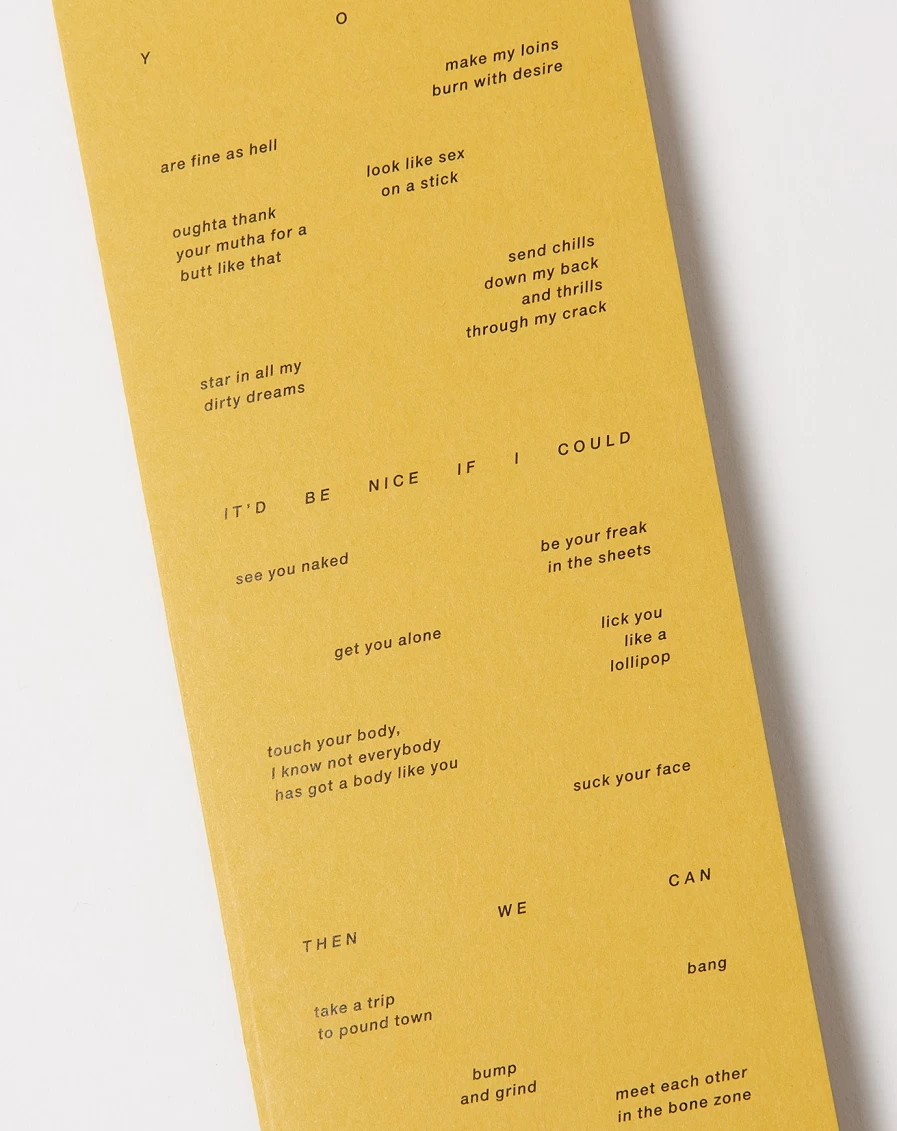 Y O
make my loins
burn with desire
are fine as hell
look like sex
on a stick
oughta thank
your mutha for a
butt like that
send chills
down my back
and thrills
through my crack
star in all my
dirty dreams
IT'D BE NICE IF I COULD
see you naked
be your freak
in the sheets
get you alone
lick you
like a
lollipop
touch your body,
I know not everybody
has got a body like you
suck your face
THEN WE CAN
bang
take a trip
to pound town
bump
and grind
meet each other
in the bone zone